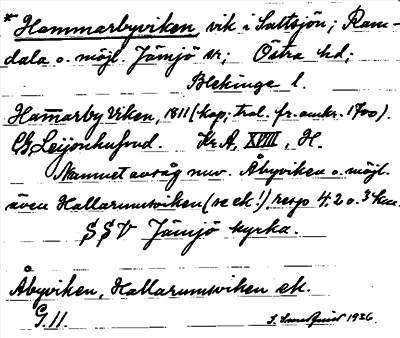 * Hammarbyviken, vik i Saltsjön; Ram-
dala o. möjl. Jämjö sn; Östra hd;
Blekinge l.
Ham̅arby Viken, 1811 (kop; trol. fr. omkr. 1700).
CG Leijonhufvud. Kr. A, XVIII, H.
Namnet avsåg nuv. Åbyviken o. möjl.
även Hallarumsviken (se ek!) resp 4.2 o. 3 km.
SSV Jämjö kyrka.
Åbyviken, Hallarumsviken ek.
G. 11. 1926.